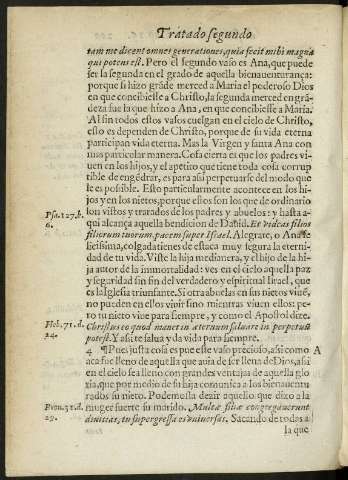 Tratado segundo
tam me dicent omnes generationes, quia fecit mihi magna
qui potens est. Pero el segundo vaso es Ana, que puede
ser la segunda en el grado de aquella bienauenturança:
porque si hizo grãde merced a Maria el poderoso Dios
en que concibiesse a Christo, la segunda merced en grã-
deza fue la que hizo a Ana, en que concibiesse a Maria.
Al fin todos estos vasos cuelgan en el cielo de Christo,
esto es dependen de Christo, porque de su vida eterna
participan vida eterna. Mas la Virgen y santa Ana con
mas particular manera. Cosa cierta es que los padres vi-
uen en los hijos, y el apetito que tiene toda cosa corrup
tible de engẽdrar, es para assi perpetuarse del modo que
le es possible. Esto particularmente acontece en los hi-
jos y en los nietos, porque estos son los que de ordinario
son vistos y tratados de los padres y abuelos: y hasta a-
Psa. 127. b.
6.
qui alcança aquella bendicion de Dabid. Et videas filios
filiorum tuorum, pacem super Israel. Alegrate, o Ana fe
licissima, colgada tienes de estaca muy segura la eterni-
dad de tu vida. Viste la hija medianera, y el hijo de la hi-
ja autor de la immortalidad: ves en el cielo aquella paz
y seguridad sin fin del verdadero y espiritual Israel, que
es la Iglesia triunfante. Si otras abuelas en sus nietos viuẽ,
no pueden en ellos viuir sino mientras viuen ellos: pe-
ro tu nieto viue para siempre, y como el Apostol dize.
Heb. 7. d.
24.
Christus eo quod manet in æternum saluare in perpetuũ
potest. Y assi te salua y da vida para siempre.
4 ¶ Pues justa cosa es que esse vaso precioso, assi como A
acá fue lleno de aquella que auia de ser llena de Dios, assi
en el cielo sea lleno con grandes ventajas de aquella glo
ria, que por medio de su hija comunica a los bienauentu
rados su nieto. Podemosla dezir aquello que dixo a la
Prou. 31. d.
29.
muger fuerte su marido. Multæ filiæ congregauerunt
diuitias, tu supergressa es vniuersas. Sacando de todas a
la que